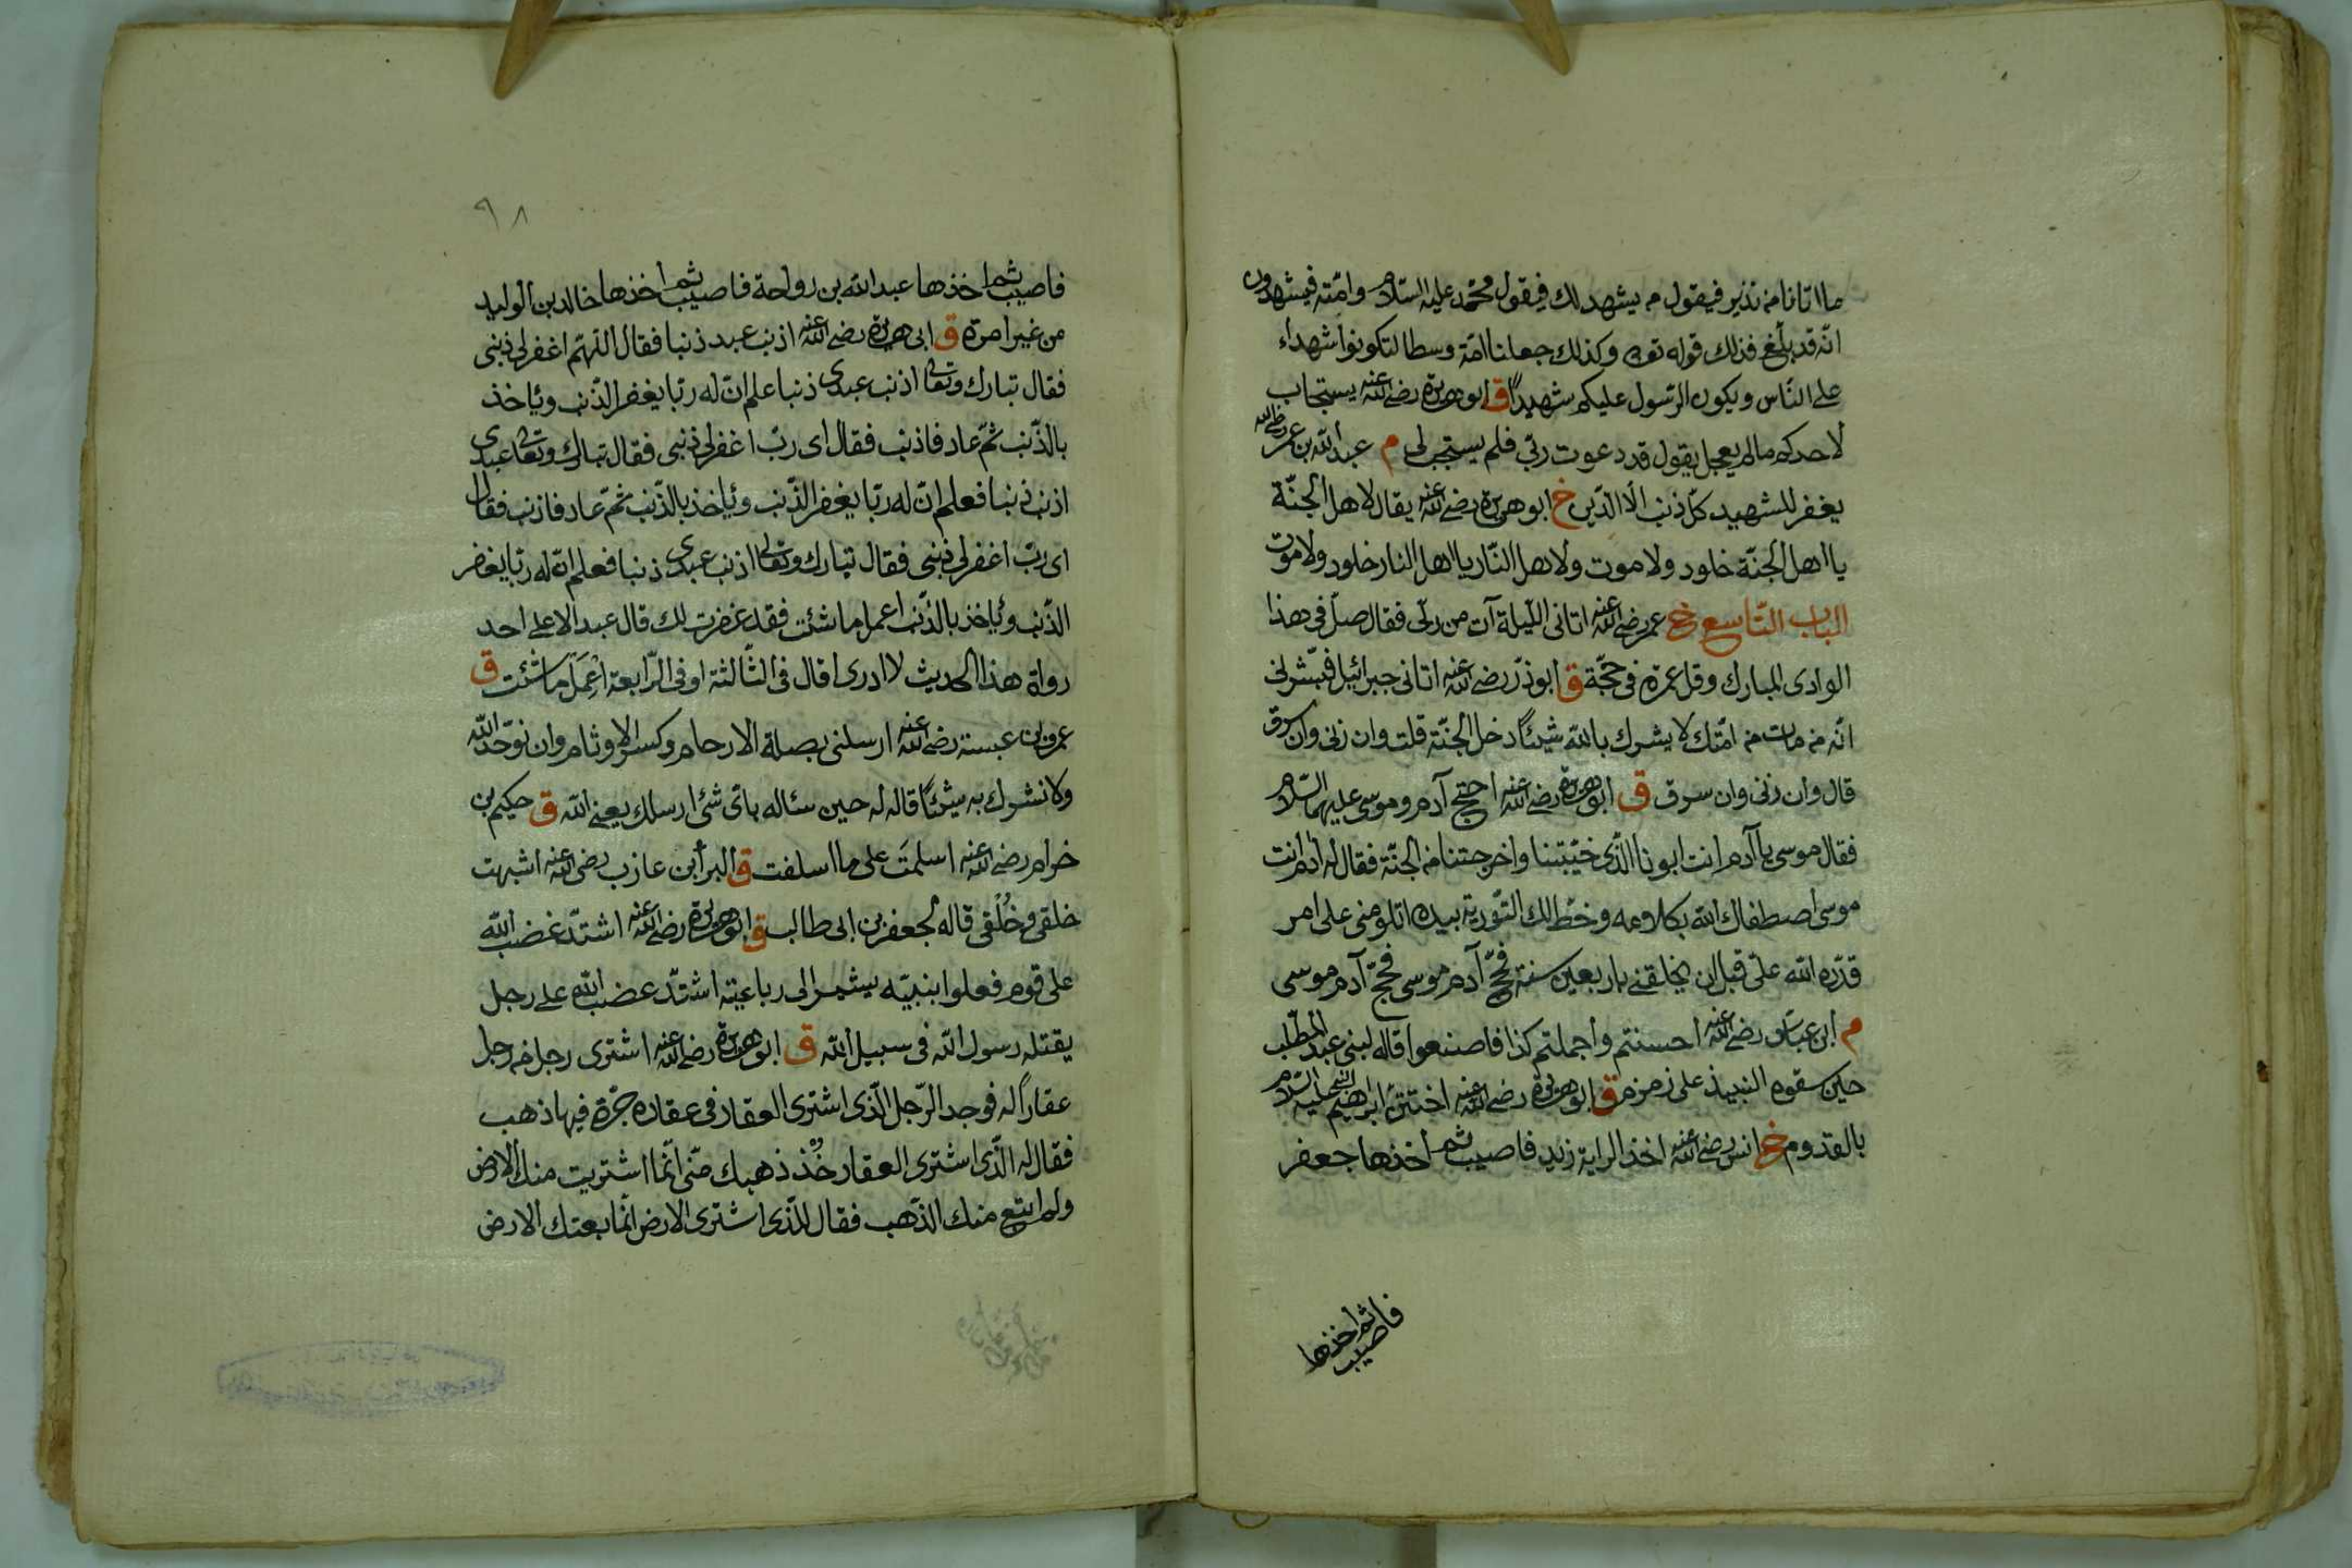 ما اتانا من نذير فيقول من يشهد لك فيقول محمّد عليه السّلام وامّته فيشهدون
انّه قد بلّغ فذلك قوله تعالى وكذلك جعلناكم امّة وسطا لتكونوا شهداء
على النّاس ويكون الرّسول عليكم شهيداً ق ابو هريرة رضي الله عنه يستجاب
لاحدكم مالم يعجل يقول قد دعوت ربّي فلم يستجب لي م عبد الله بن عمر رضي الله
يغفر للشهيد كلّ ذنب الّا الدّين خ ابو هريرة رضي الله عنه يقال لاهل الجنّة
يا اهل الجنّة خلود ولا موت ولاهل النّار يا اهل النار خلود ولا موت
الباب التّاسع خ عمر رضي الله عنه اتاني اللّيلة آت من ربّي فقال صلّ في هذا
الوادي المبارك وقل عمرة في حجّة ق ابو ذرّ رضي الله عنه اتاني جبرائيل فبّشرني
انّه من مات من امّتك لا يشرك بالله شيئاً دخل الجنّة قلت وان زنى وان سرق
قال وان زنى وان سرق ق ابو هريرة رضي الله عنه احتج آدم وموسى عليهما السّلام
فقال موسى يا آدم انت ابونا الّذي خيّبتنا واخرجتنا من الجنّة فقال له آدم انت
موسى اصطفاك الله بكلامه وخطّ لك التّورية بيده اتلومني على امر
قدّره الله علىّ قبل ان يخلقني باربعين سنة فحجّ آدم موسى فحجّ آدم موسى
م ابن عبّاس رضي الله عنه احسنتم واجملتم كذا فاصنعوا قاله لبني عبد المطّلب
حين سقوه النبيذ على زمزم ق ابو هريرة رضي الله عنه اختتن ابراهيم النبي عليه السّلام
بالقدوم خ انس رضي الله عنه اخذ الراية زيد فاصيب ثم اخذها جعفر
فاصيب ثم اخذها
٩٨
فاصيب ثم اخذها عبد الله بن رواحة فاصيب ثم اخذها خالد بن الوليد
من غير امرة ق ابي هريرة رضي الله عنه اذنب عبد ذنبا فقال اللّهمّ اغفر لي ذنبي
فقال تبارك وتعالى اذنب عبدي ذنبا علم انّ له ربّا يغفر الذّنب ويأخذ
بالذّنب ثمّ عاد فاذنب فقال اي ربّ اغفر لي ذنبي فقال تبارك وتعالى عبدي
اذنب ذنبا فعلم انّ له ربّا يغفر الذّنب ويأخذ بالذّنب ثمّ عاد فاذنب فقال
اي ربّ اغفر لي ذنبي فقال تبارك وتعالى اذنب عبدي ذنبا فعلم انّ له ربّا يغفر
الذّنب ويأخذ بالذّنب اعمل ما شئت فقد غفرت لك قال عبد الاعلى احد
رواة هذا الحديث لا ادري اقال في الثّالثة او في الرّابعة اعمل ما شئت ق
عمرو بن عبسة رضي الله عنه ارسلني بصلة الارحام وكسر الاوثام وان نوحّد الله
ولا نشرك به شيئاً قاله له حين سئاله باىّ شئ ارسلك يعني الله ق حكيم بن
خرام رضي الله عنه اسلمت على ما اسلفت ق البرأ بن عازب رضي الله عنه اشبهت
خلقي وخُلُقي قاله لجعفر بن ابي طالب ق ابو هريرة رضي الله عنه اشتدّ غضب الله
على قوم فعلوا بنبيّه يشير الى رباعيته اشتدّ غضب الله على رجل
يقتله رسول الله في سبيل الله ق ابو هريرة رضي الله عنه اشترى رجل من رجل
عقاراً له فوجد الرّجل الّذي اشترى العقار في عقاره جرّة فيها ذهب
فقال له الّذي اشترى العقار خُذ ذهبك منّي انّما اشتريت منك الارض
ولم ابتع منك الذّهب فقال للّذي اشترى الارض انّما بعتك الارض